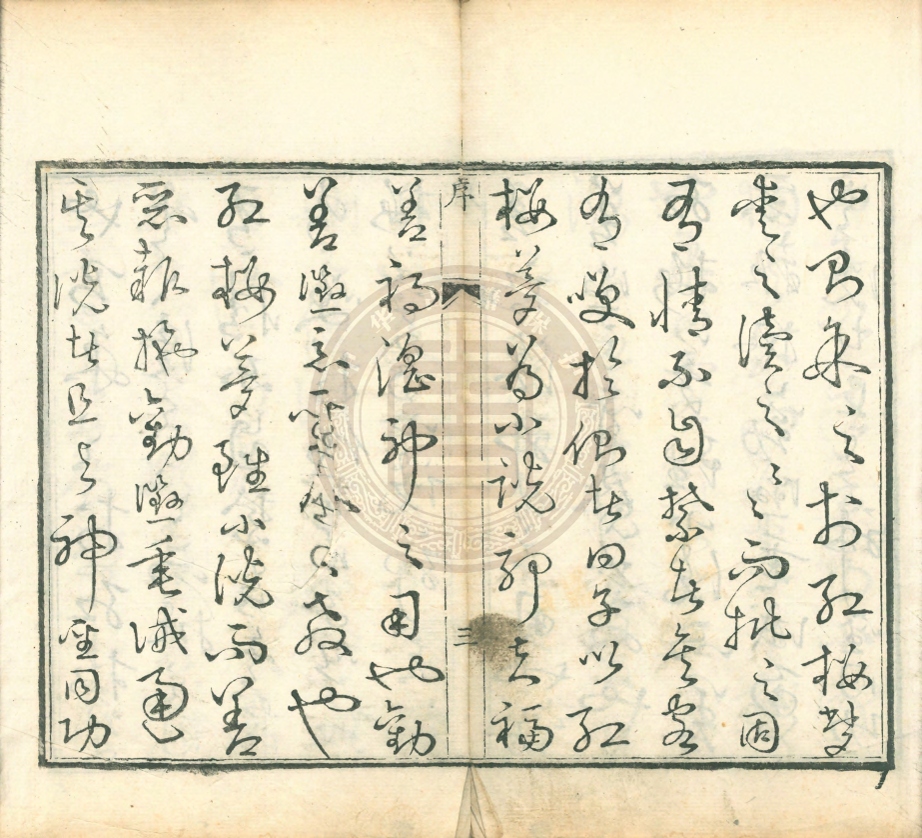 也則余之於紅樓夢
愛之讀之〻〻而批之固
有情不自禁者矣客
有笑於側者曰子以紅
樓夢為小說耶夫福
序
三
善禍淫神之司也勸
善懲惡聖人之教也
紅樓夢雖小說而善
惡報施勸懲垂誡通
其說者且與神聖同功